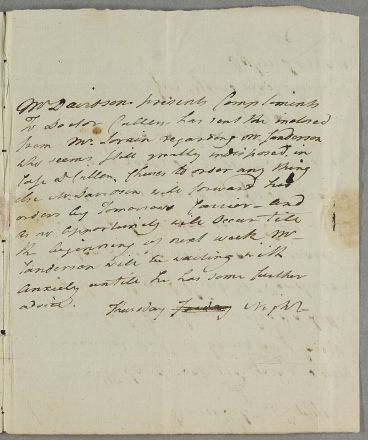 Mr Davidson presents Compliments
To Doctor Cullen has sent the inclosed
from Mr Irvin regarding Mr Sanderson
who seems still really indisposed, in
Case Dr Cullen Chuses to order any thing
else Mr Davidson will forward his
orders by Tomorrows Carrier - and
as no opportunity will Occur till
the beginning of next week Mr
Sanderson will be waiting with
Anxiety untill he has some further
advice.
Thursday Friday Night